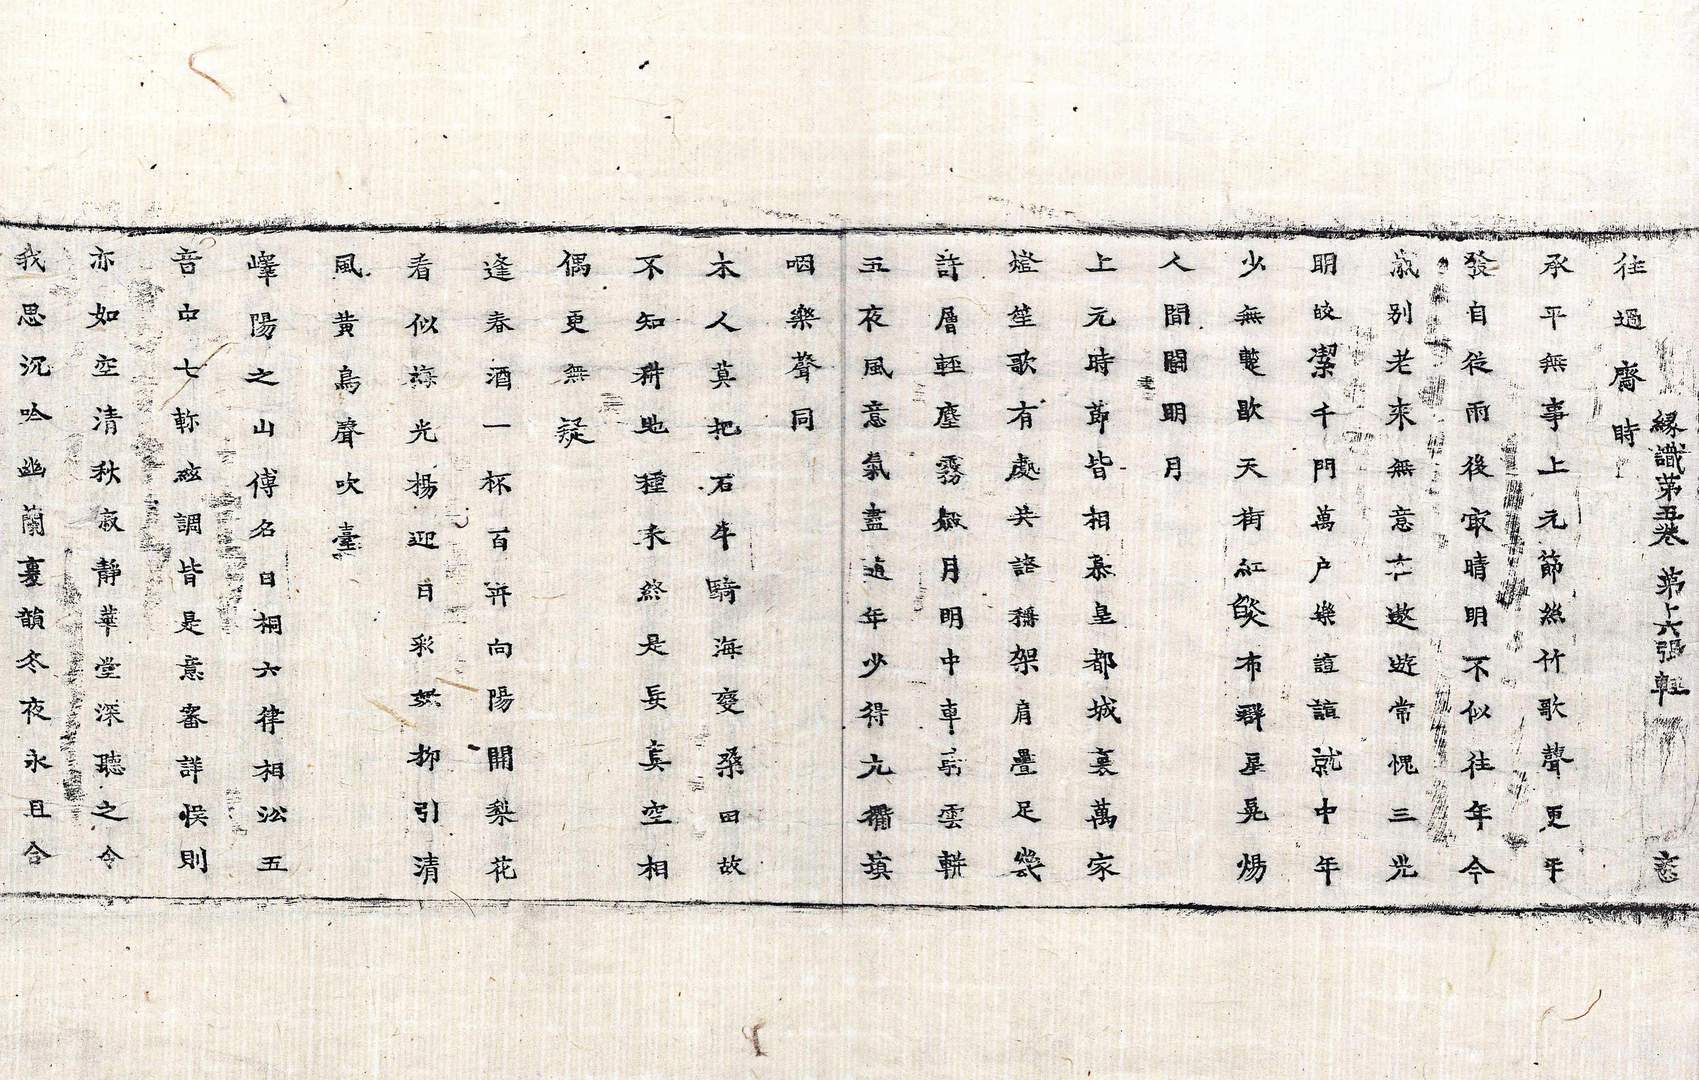 緣識第五卷 第十六張 軽
往過齋時
承平無事上元節絲竹歌聲更平
發自從雨後寂晴明不似往年今
歲別老來無意恣遨遊常愧三光
明皎潔千門萬户樂諠諠就中年
少無蹔歇天街紅熖布群星晃煬
人間闘明月
上元時節皆相慕皇都城裏萬家
燈笙歌有處共諮稱架肩疊足幾
許層輕塵霧歛月明中車馬雲軿
五夜風意氣盡追年少得九衢塡
咽樂聲同
木人莫把石牛騎海變桑田故
不知耕地種禾終是妄真空相
偶更無疑
逢春酒一杯百卉向陽開梨花
看似梅光楊迎日彩無抑引清
風黃鳥聲吹臺
嶧陽之山傳名曰桐六律相公五
音中七軫絃調皆是意審詳悮則
亦如空清秋寂靜華堂深聽之令
我思沉吟幽蘭裏韻冬夜永且合